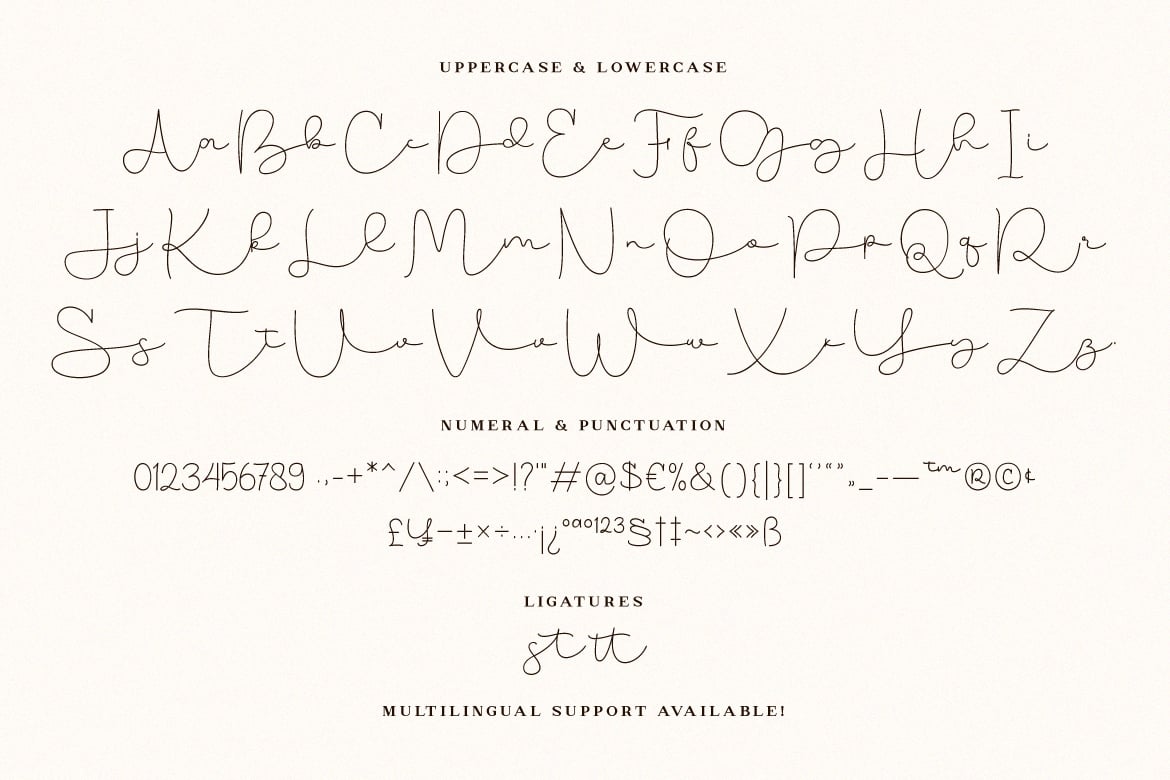 UPPERCASE & LOWERCASE
Aa Bb Cc Dd Ee Ff Gg Hh Ii
Jj Kk Ll Mm Nn Oo Pp Qq Rr
Ss Tt Uu Vv Ww Xx Yy Zz
NUMERAL & PUNCTUATION
0123456789 .,-+*^/\:;<=>!?'"#@$€%&(){|}[]‘’“”„_–—™®©¢
£¥−±×÷…·¡¿ºªº¹²³§†‡~‹›«»ß
LIGATURES
st tt
MULTILINGUAL SUPPORT AVAILABLE!